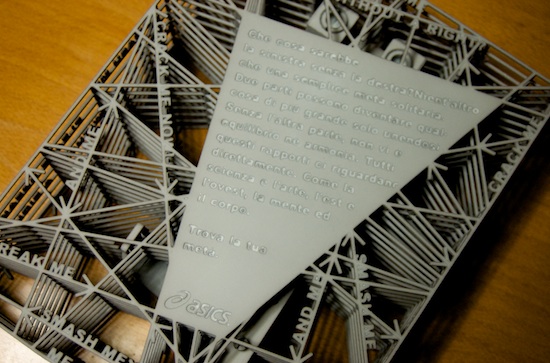 Che cosa sarebbe
la sinistra senza la destra? Nient'altro
che una semplice metà solitaria.
Due parti possono diventare qual
cosa di più grande solo unendosi
Senza l'altra parte non vi è
equilibrio né armonia. Tutti
questi rapporti ci riguardano
direttamente. Come la
scienza e l'arte, l'est e
l'ovest, la mente ed
il corpo.
Trova la tua
metà
asics
WITHOUT A RIGHT
CRACK ME NOT
ME
BREAK ME
SMASH ME
ME
AND ME
SMASH ME
CRACK